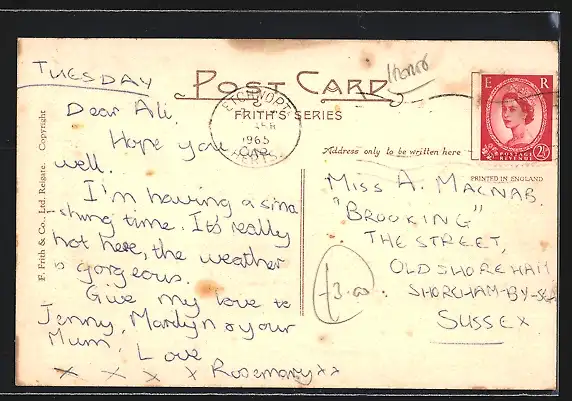 TUESDAY
POST CARD
FRITH'S SERIES
Address only to be written here
E R
POSTAGE
REVENUE
2½
PRINTED IN ENGLAND
LETCHWORTH
1965
HERTS.
F. Frith & Co., Ltd. Reigate. Copyright
Dear Ali,
Hope you
well.
I'm having a sma
shing time. It's really
hot here, the weather
is gorgeous.
Give my love to
Jenny, Marilyn & your
Mum, Love
x x x x Rosemary xx
MISS A. MACNAB.
"BROOKING"
THE STREET,
OLD SHOREHAM
SHOREHAM-BY-SEA
SUSSEX
£3.00